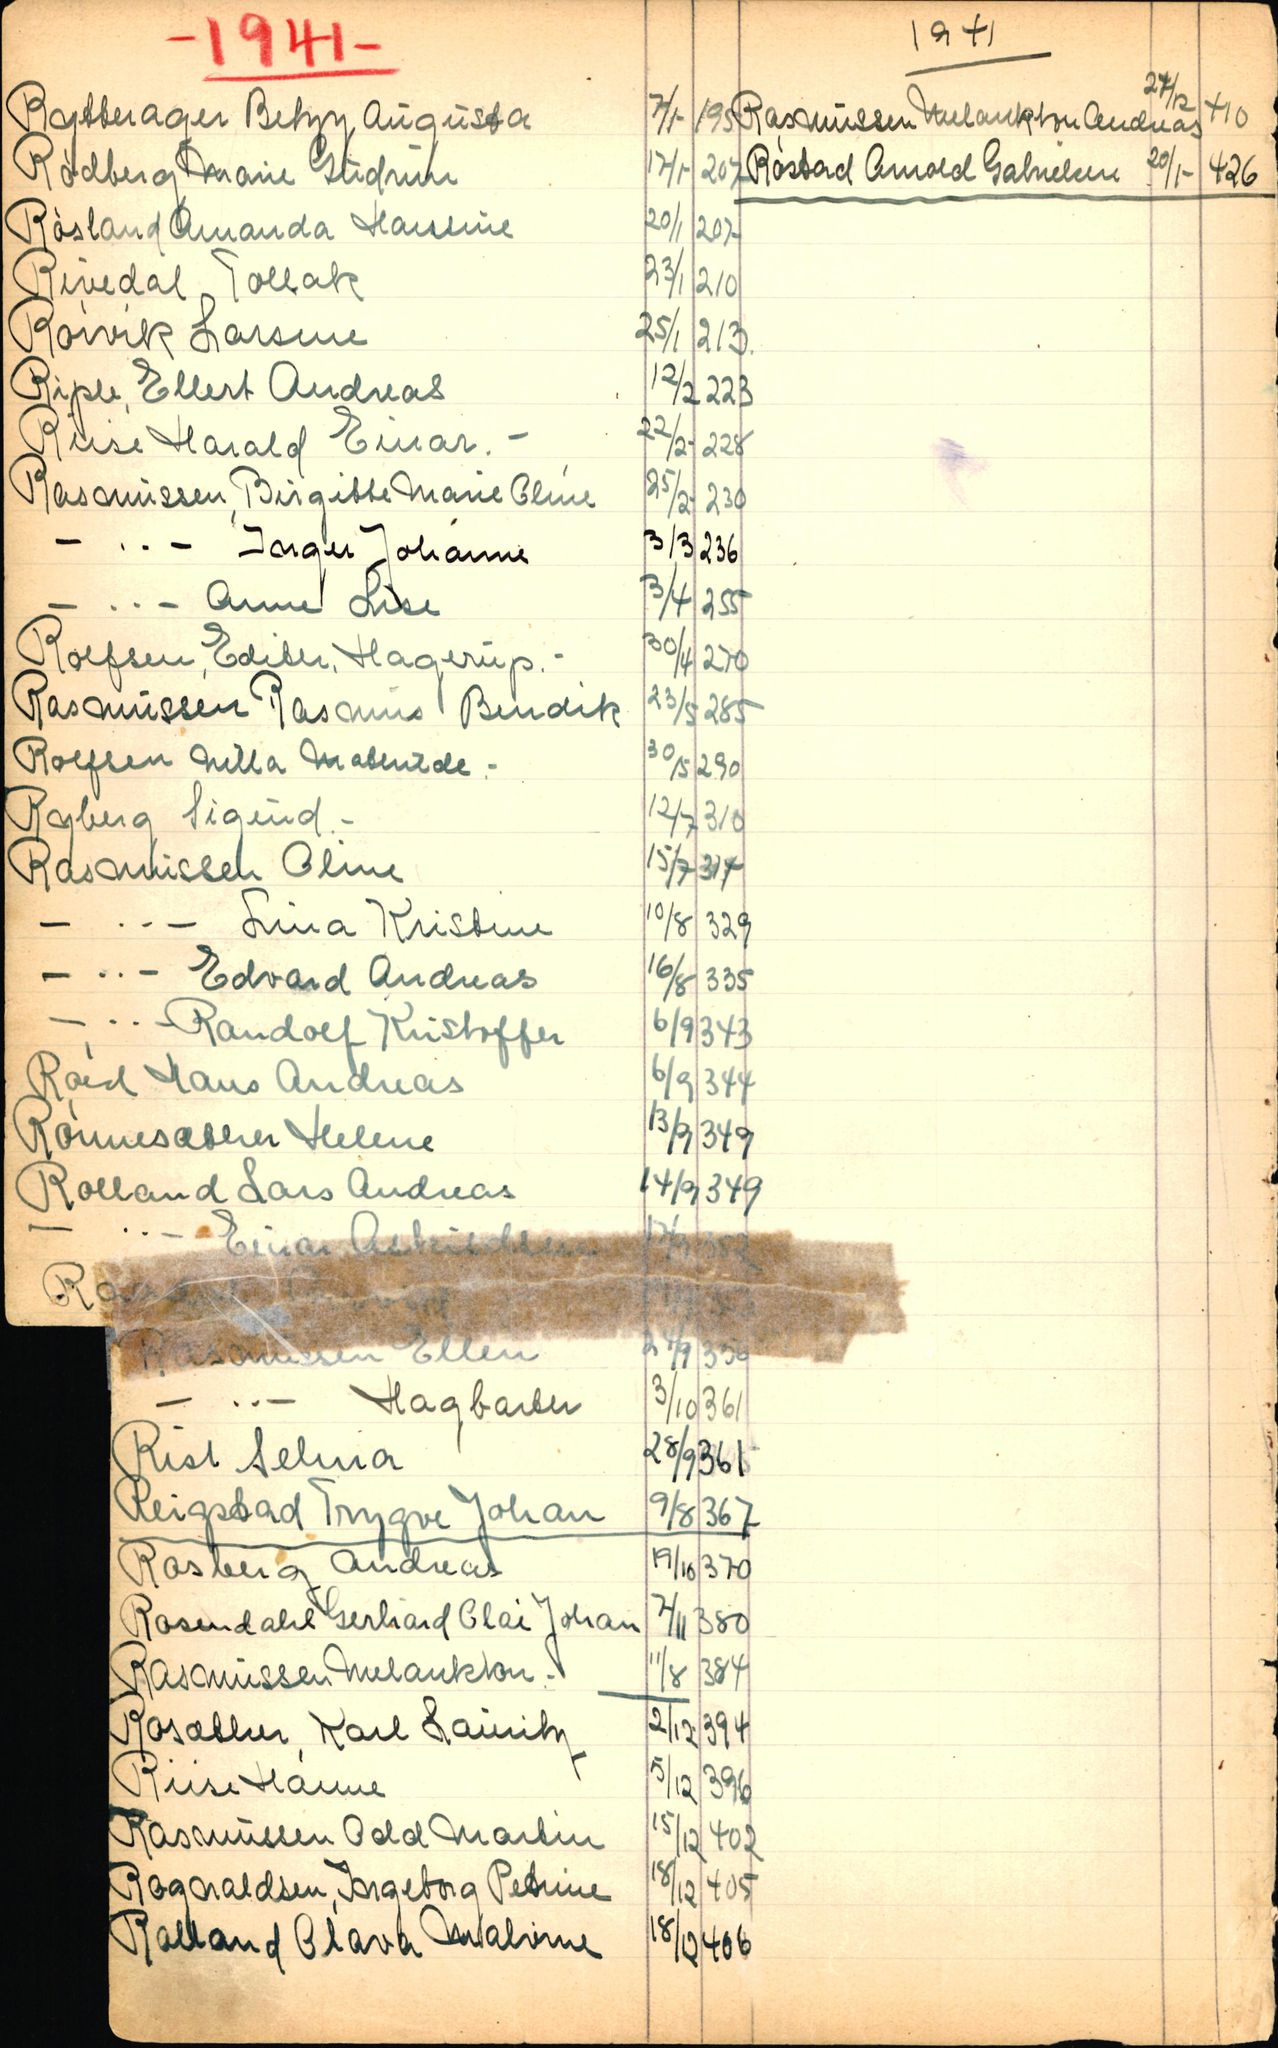 -1941-
Rytterager Betzy Augusta 7/1- 195
Rödberg Marie Gudrun 17/1- 207
Rösland Amanda Hansine 20/1 207
Rivedal Tollak 23/1 210
Rörvik Larsine 25/1 213
Riple, Ellert Andreas 12/2 223
Riise Harald Einar. - 22/2- 228
Rasmussen, Birgitte Marie Oline 25/2- 230
- ..- Inger Johanne 3/3 236
- ..- Anne Lise 3/4 255
Rolfsen, Edith, Hagerup.- 30/4 270
Rasmussen Rasmus Bendik 23/5 285
Rolfsen Milla Mathilde.- 30/5 290
Ryberg Sigurd.- 12/7 310
Rasmussen Oline 15/7 314
- ..- Lina Kristine 10/8 329
- ..- Edvard Andreas 16/8 335
- ..- Randolf Kristoffer 6/9 343
Röed Hans Andreas 6/9 344
Rönnesæther Helene 13/9 349
Rolland Lars Andreas 14/9 349
- ..- Einar 17/9 352
Rasmussen Ellen 24/9 356
- ..- Hagbarth 3/10 361
Rist Selma 28/9 361
Reigstad Trygve Johan 9/8 367
Rosberg Andreas 19/10 370
Rosendahl Gerhard Olai Johan 7/11 380
Rasmussen Melankton.- 11/8 384
Rosæther, Karl Lauritz 2/12 394
Riise Hanne 5/12 396
Rasmussen Odd Martin 15/12 402
Ragnvaldsen, Ingeborg Petrine 18/12 405
Rolland Olava Malvine 18/12 406
1941
Rasmussen Melankton Andreas 27/12 410
Röstad Arnold Gabrielsen 20/1- 426